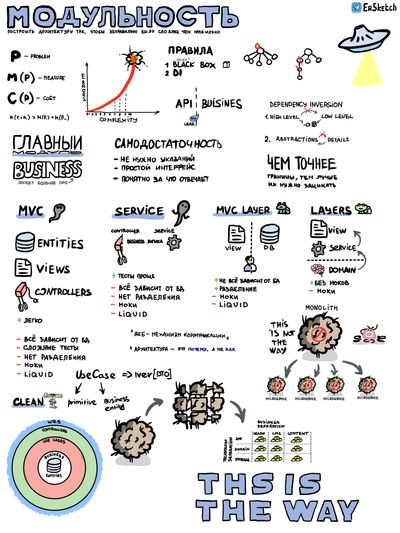 МОДУЛЬНОСТЬ
EnSketch
ПОСТРОИТЬ АРХИТЕКТУРУ ТАК, ЧТОБЫ НЕПРАВИЛЬНО БЫЛО СЛОЖНЕЕ ЧЕМ ПРАВИЛЬНО
P - PROBLEM
M(P) - MEASURE
C(P) - COST
COMPLEXITY
ПРАВИЛА
1 BLACK BOX
2 DI
API BUISINES
LEAK
DEPENDENCY INVERSION
1. HIGH LEVEL LOW LEVEL
2. ABSTRACTIONS DETAILS
ГЛАВНЫЙ
BUSINESS
ЗНАЕТ БОЛЬШЕ ПРО
САМОДОСТАТОЧНОСТЬ
- НЕ НУЖНО УКАЗАНИЙ
- ПРОСТОЙ ИНТЕРФЕЙС
- ПОНЯТНО ЗА ЧТО ОТВЕЧАЕТ
ЧЕМ ТОЧНЕЕ
ГРАНИЦЫ, ТЕМ ЛУЧШЕ
ИХ НУЖНО ЗАЩИЩАТЬ
MVC
ENTITIES
VIEWS
CONTROLLERS
+ ЛЕГКО
- ВСЁ ЗАВИСИТ ОТ БД
- СЛОЖНЫЕ ТЕСТЫ
- НЕТ РАЗДЕЛЕНИЯ
- МОКИ
- LIQUID
SERVICE
CONTROLLER SERVICE
BUSINESS ЛОГИКА
+ ТЕСТЫ ПРОЩЕ
- ВСЁ ЗАВИСИТ ОТ БД
- НЕТ РАЗДЕЛЕНИЯ
- МОКИ
- LIQUID
MVC LAYER
VIEW DB
+ НЕ ВСЁ ЗАВИСИТ ОТ БД
+ РАЗДЕЛЕНИЕ
- МОКИ
- LIQUID
LAYERS
VIEW
SERVICE
DOMAIN
+ БЕЗ МОКОВ
- LIQUID
"ВЕБ - МЕХАНИЗМ КОММУНИКАЦИИ"
"АРХИТЕКТУРА - ЭТО ПОЧЕМУ, А НЕ КАК"
MONOLITH
THIS
IS NOT
THE
WAY
MICROSERVICE MICROSERVICE MICROSERVICE MICROSERVICE
UseCase => iver[DTO]
CLEAN
primitive
Business
entity
WEB
CONTROLLERS
USE CASES
BUSINESS
ENTITIES
BUSINESS
SEPARATION
TECHNOLOGY
SEPARATION
LMS CONTENT
API
DOMAIN
STORAGE
THS IS
THE WAY